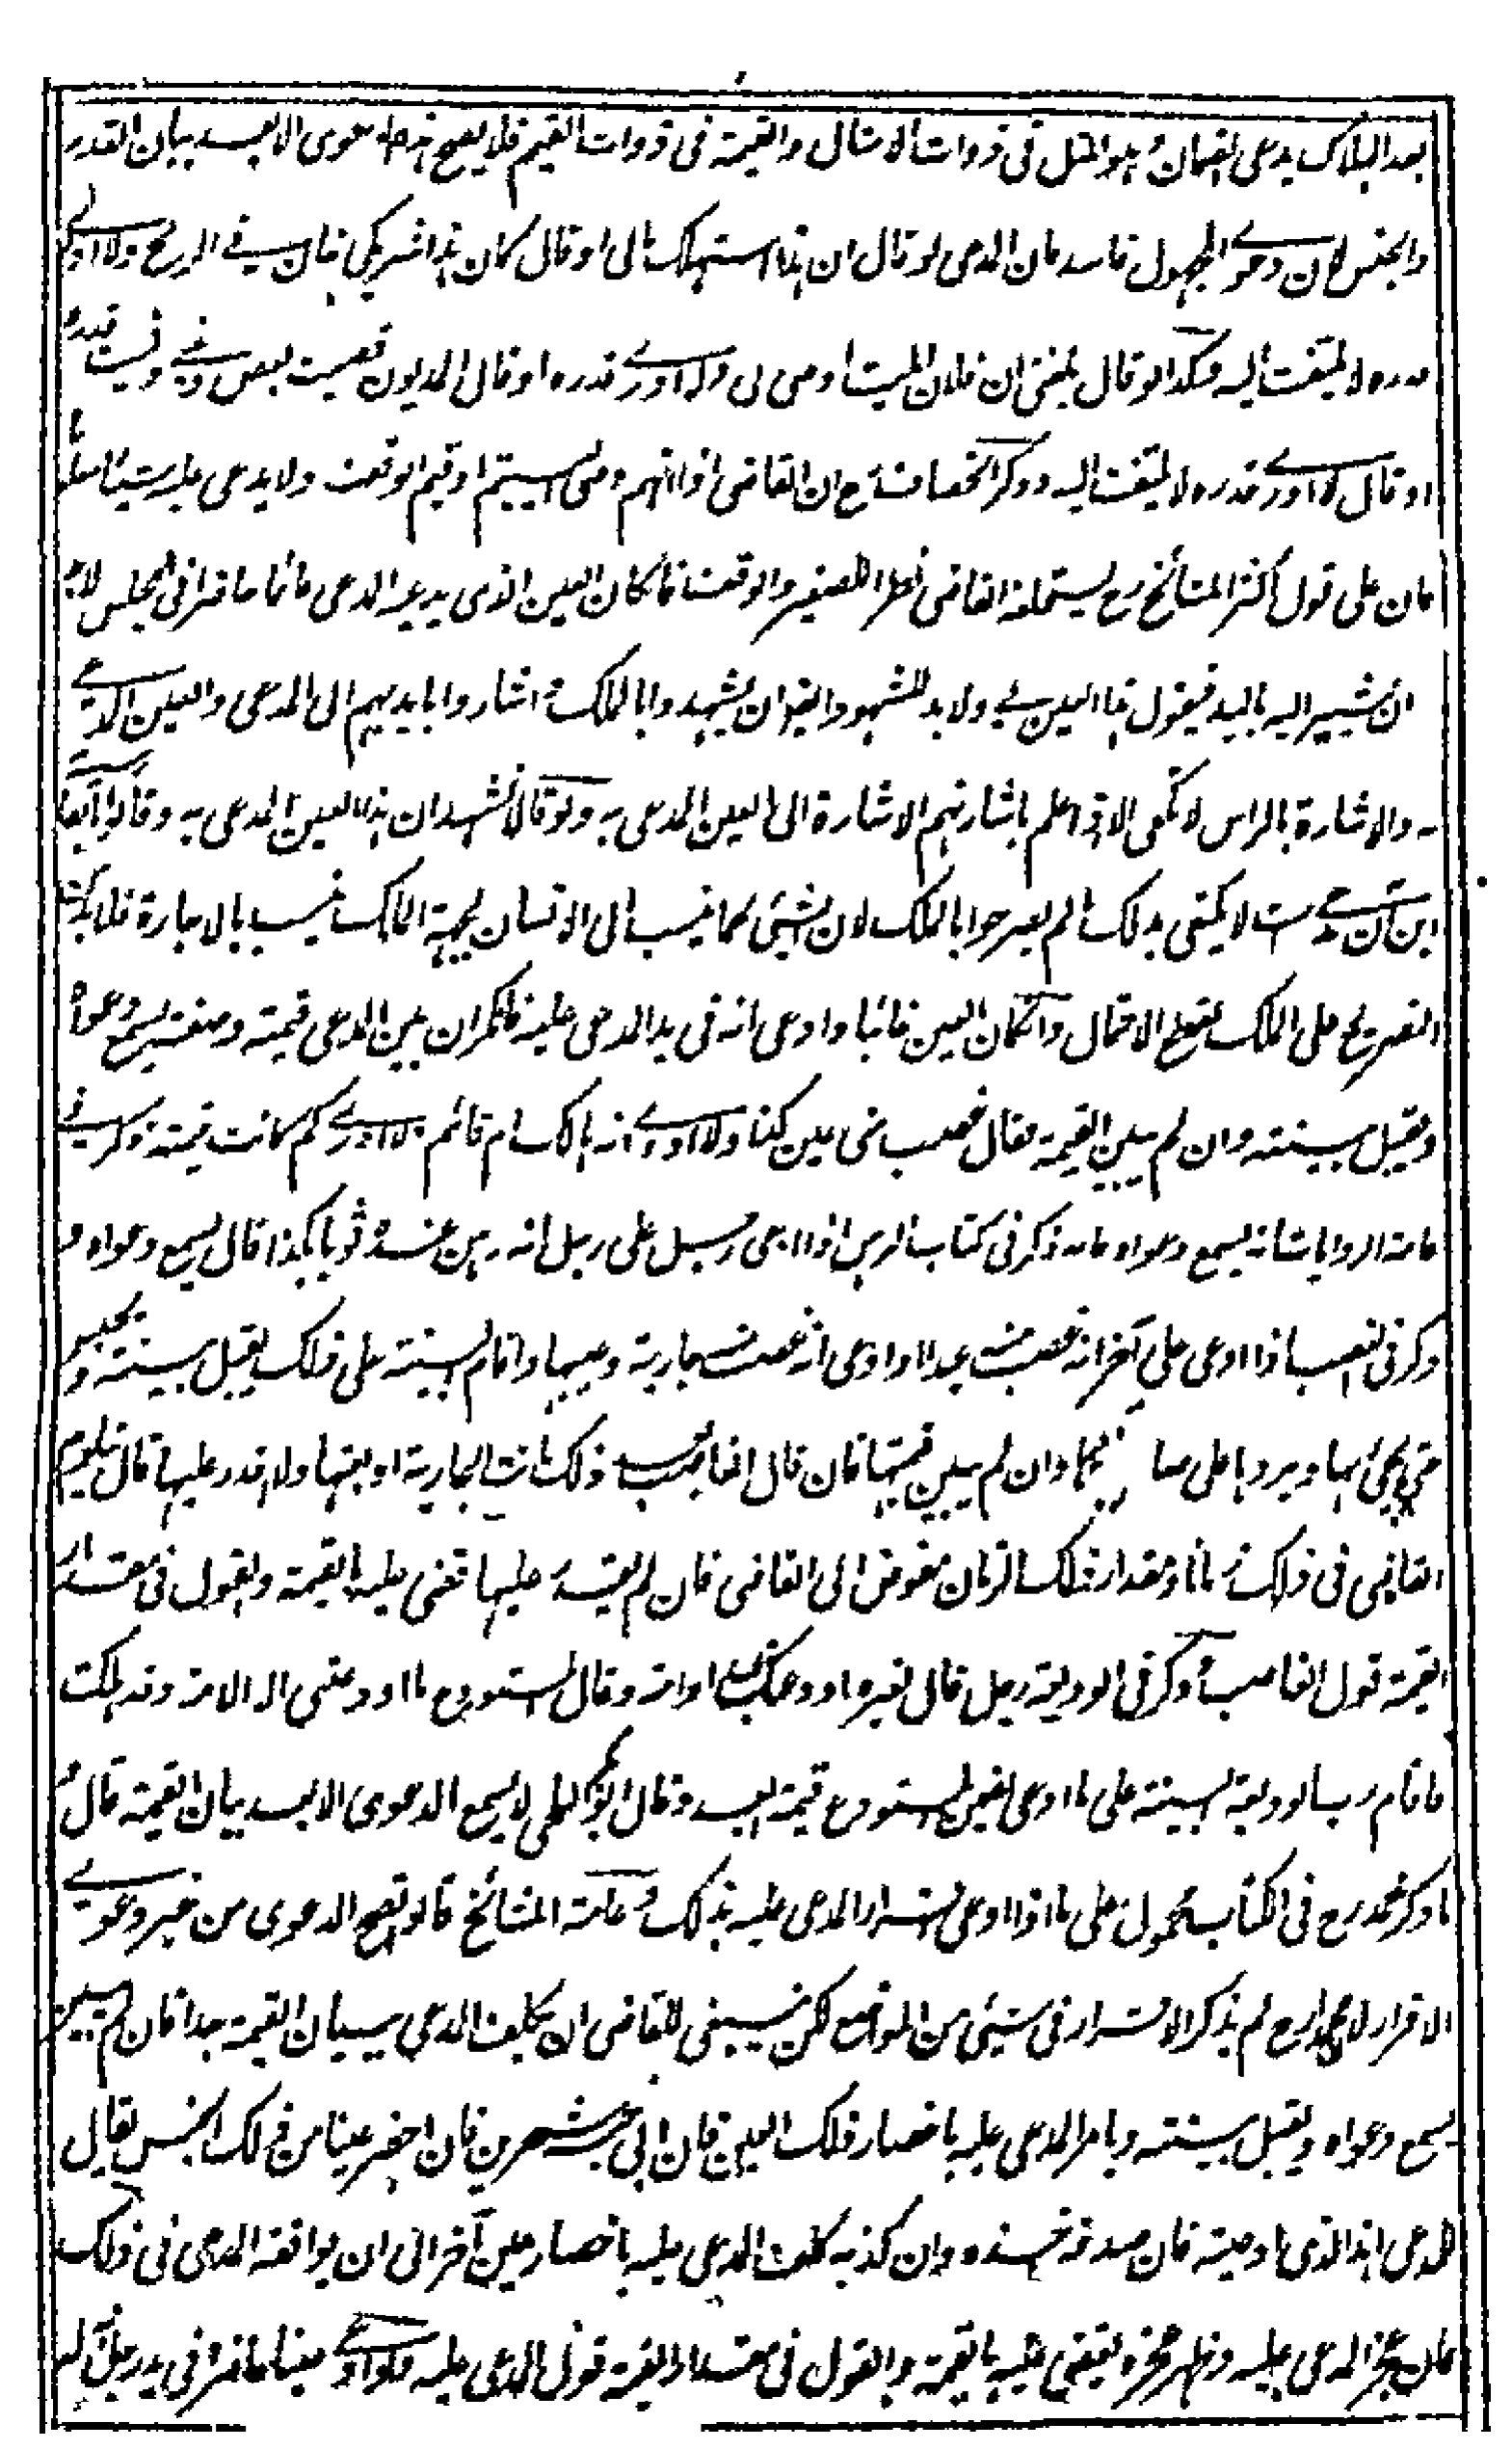 بعد الهلاك يدعى الضمان وهو المثل فى ذوات الامثال والقيمة فى ذوات القيم فلا يصح هذه الدعوى الا بعد بيان القدر
والجنس لان دعوى المجهول فاسد فان المدعى لو قال ان هذا استهلك مالى او قال كان هذا شريكى خان فى الربح ولا ادرى
قدره لا يلتفت اليه وكذا لو قال بلغنى ان فلان الميت اوصى لى ولا ادرى قدره او قال المديون قضيت بعض دينى ونسيت قدره
او قال لا ادرى قدره لا يلتفت اليه وذكر الخصاف رح ان القاضى اذا اتهم وصى اليتيم او قيم الوقف ولا يدعى عليه شيئا معلوما
فان على قول اكثر المشائخ رح يستحلفه القاضى نظرا للصغير والوقف فان كان العين الذى يدعيه المدعى قائما حاضرا فى المجلس لابد
ان يشير اليه باليد فيقول هذا العين لى ولابد للشهود ايضا ان يشهدوا بالملك واشاروا بايديهم الى المدعى والعين المدعى
به والاشارة بالراس لا تكفى الا اذا علم باشارتهم الاشارة الى العين المدعى به ولو قالوا نشهد ان هذا العين المدعى به وقالوا ايضا
اين آن ست لا يكتفى بذلك مالم يصرحوا بالملك لان الشئى كما ينسب الى الانسان بجهة الملك ينسب بالاجارة فلابد من
التصريح على الملك لقطع الاحتمال وان كان العين غائبا وادعى انه فى يد المدعى عليه فانكر ان بين المدعى قيمته وصفته يسمع دعواه
ويقبل بينته وان لم يبين القيمة فقال غصب منى عين كذا ولا ادرى انه هالك ام قائم ولا ادرى كم كانت قيمته ذكر فى
عامة الروايات انه يسمع دعواه فانه ذكر فى كتاب الرهن اذا ادعى رجل على رجل انه رهن عنده ثوبا هكذا قال يسمع دعواه و
ذكر فى الغصب اذا ادعى على آخر انه غصب منه عبدا وادعى انه غصب منه جارية وعيبها واقام البينة على ذلك يقبل بينته ويحبس
حتى يجئ بها ويردها على صاحبها وان لم يبين قيمتها فان قال الغاصب بعد ذلك ماتت الجارية او بعتها ولا قدر عليها قال يتلوم
القاضى فى ذلك زمانا ومقدار ذلك الزمان مفوض الى القاضى فان لم يقدر عليها قضى عليه بالقيمة والقول فى مقدار
القيمة قول الغاصب وذكر فى الوديعة رجل قال لغيره اودعتك عبدا وامة وقال المستودع ما اودعتنى الا الامة وقد هلكت
فاقام رب الوديعة البينة على ما ادعى يضمن المستودع قيمة العبد وقال ابو بكر البلخى لا يسمع الدعوى الا بعد بيان القيمة قال و
ما ذكر محمد رح فى الكتاب محمول على ما اذا ادعى اقرار المدعى عليه بذلك وعامة المشائخ قالوا تصح الدعوى من غير دعوى
الاقرار لان محمدا رح لم يذكر الاقرار فى شئى من المواضع لكن ينبغى للقاضى ان يكلف المدعى ببيان القيمة جدا فان لم يبين
يسمع دعواه ويقبل بينته ويامر المدعى عليه باحضار ذلك العين فان ابى حبسه شهرين فان احضر عينا من ذلك الجنس يقال
للمدعى اهذا الذى ادعيته فان صدقه اخذه وان كذبه كلف المدعى عليه باحضار عين آخر الى ان يوافقه المدعى فى ذلك
فان عجز المدعى عليه وظهر عجزه يقضى عليه بالقيمة والقول فى مقدار القيمة قول المدعى عليه ولو ادعى عينا حاضرا فى يد رجل انه له